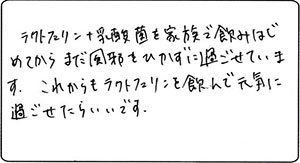 ラクトフェリン+乳酸菌を家族で飲みはじ
めてからまだ風邪をひかずに過ごせていま
す. これからもラクトフェリンを飲んで元気に
過ごせたらいいです.